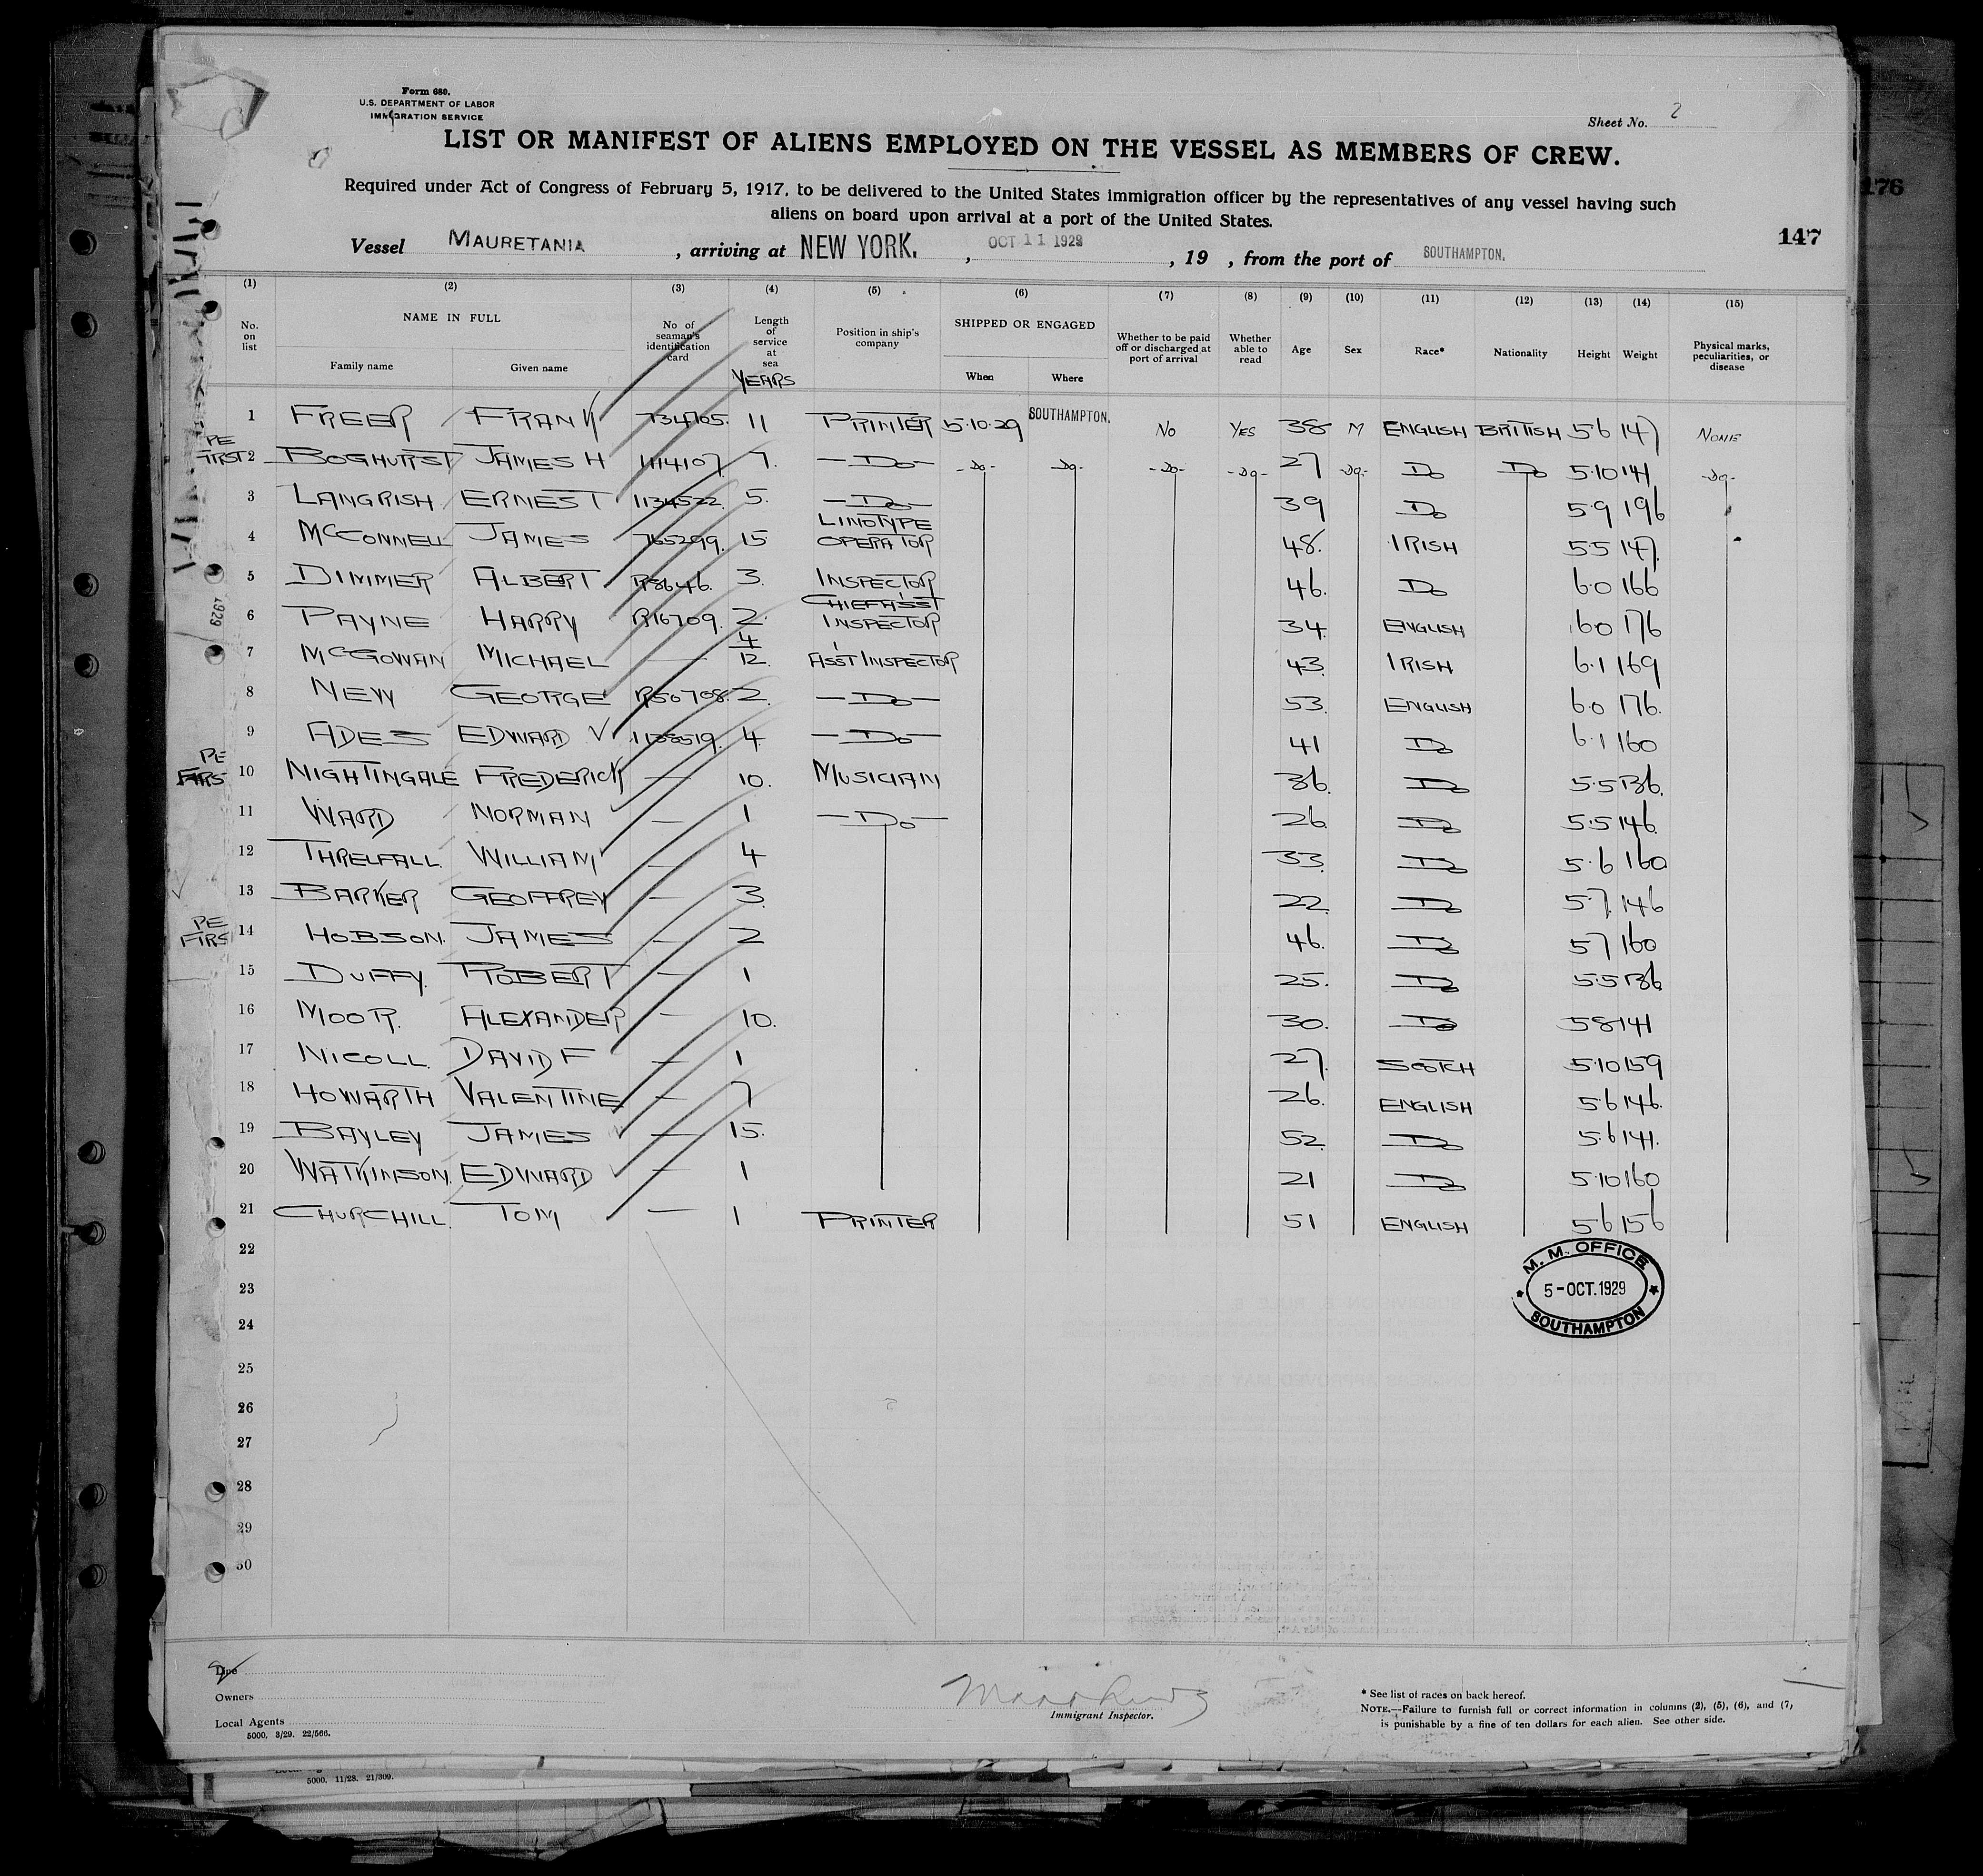 Form 680.
U.S. DEPARTMENT OF LABOR
IMMIGRATION SERVICE
Sheet No. 2
LIST OR MANIFEST OF ALIENS EMPLOYED ON THE VESSEL AS MEMBERS OF CREW.
Required under Act of Congress of February 5, 1917, to be delivered to the United States immigration officer by the representatives of any vessel having such
aliens on board upon arrival at a port of the United States.
176
147
Vessel MAURETANIA , arriving at NEW YORK. , OCT 11 1929 , 19 , from the port of SOUTHAMPTON.
(1) (2) (3) (4) (5) (6) (7) (8) (9) (10) (11) (12) (13) (14) (15)
No. on list NAME IN FULL Family name Given name No of seaman's identification card Length of service at sea YEARS Position in ship's company SHIPPED OR ENGAGED When Where Whether to be paid off or discharged at port of arrival Whether able to read Age Sex Race* Nationality Height Weight Physical marks, peculiarities, or disease
1 FREER FRANK 734705. 11 PRINTER 5.10.29 SOUTHAMPTON. NO YES 38 M ENGLISH BRITISH 5 6 147 NONE
PE FIRST 2 BOGHURST JAMES H 1114107 7. - Do - - Do - - Do - - Do - - Do - 27 - Do - Do Do 5.10 141 - Do -
3 LANGRISH ERNEST 1134522. 5. - Do - 39 Do 5.9 196
4 McCONNELL JAMES 765299. 15 LINOTYPE OPERATOR 48. IRISH 5.5 147
5 DIMMER ALBERT R8646. 3. INSPECTOR 46. Do 6.0 166
6 PAYNE HARRY R16709. 2. CHIEF ASST INSPECTOR 34 ENGLISH 6.0 176
7 McGOWAN MICHAEL — 4/12. ASST INSPECTOR 43 IRISH 6.1 169
8 NEW GEORGE R50708 2. - Do - 53. ENGLISH 6.0 176.
9 ADES EDWARD V 1138519. 4. - Do - 41 Do 6.1 160
PE FIRS 10 NIGHTINGALE FREDERICK — 10. MUSICIAN 36. Do 5.5 136.
11 WARD NORMAN — 1 - Do - 26 Do 5.5 146.
12 THRELFALL. WILLIAM — 4 33. Do 5.6 160
13 BARKER GEOFFREY — 3. 22. Do 5.7. 146
PE FIRS 14 HOBSON. JAMES — 2 46. Do 5 7 160
15 DUFFY. ROBERT — 1 25. Do 5.5 136
16 MOOR. ALEXANDER — 10. 30. Do 5 8 141
17 NICOLL. DAVID F — 1 27. SCOTCH 5.10 159
18 HOWARTH VALENTINE — 7 26. ENGLISH 5.6 146.
19 BAYLEY JAMES — 15. 52. Do 5.6 141.
20 WATKINSON. EDWARD — 1 21 Do 5.10 160
21 CHURCHILL. TOM — 1 PRINTER 51 ENGLISH 5 6 156
22
M. M. OFFICE
23
5-OCT.1929
SOUTHAMPTON
24
25
26
27
28
29
30
1929
Line
Owners
Local Agents
5000, 3/29. 22/566.
Immigrant Inspector.
* See list of races on back hereof.
NOTE.—Failure to furnish full or correct information in columns (2), (5), (6), and (7)
is punishable by a fine of ten dollars for each alien. See other side.
5000, 11/28. 21/309.